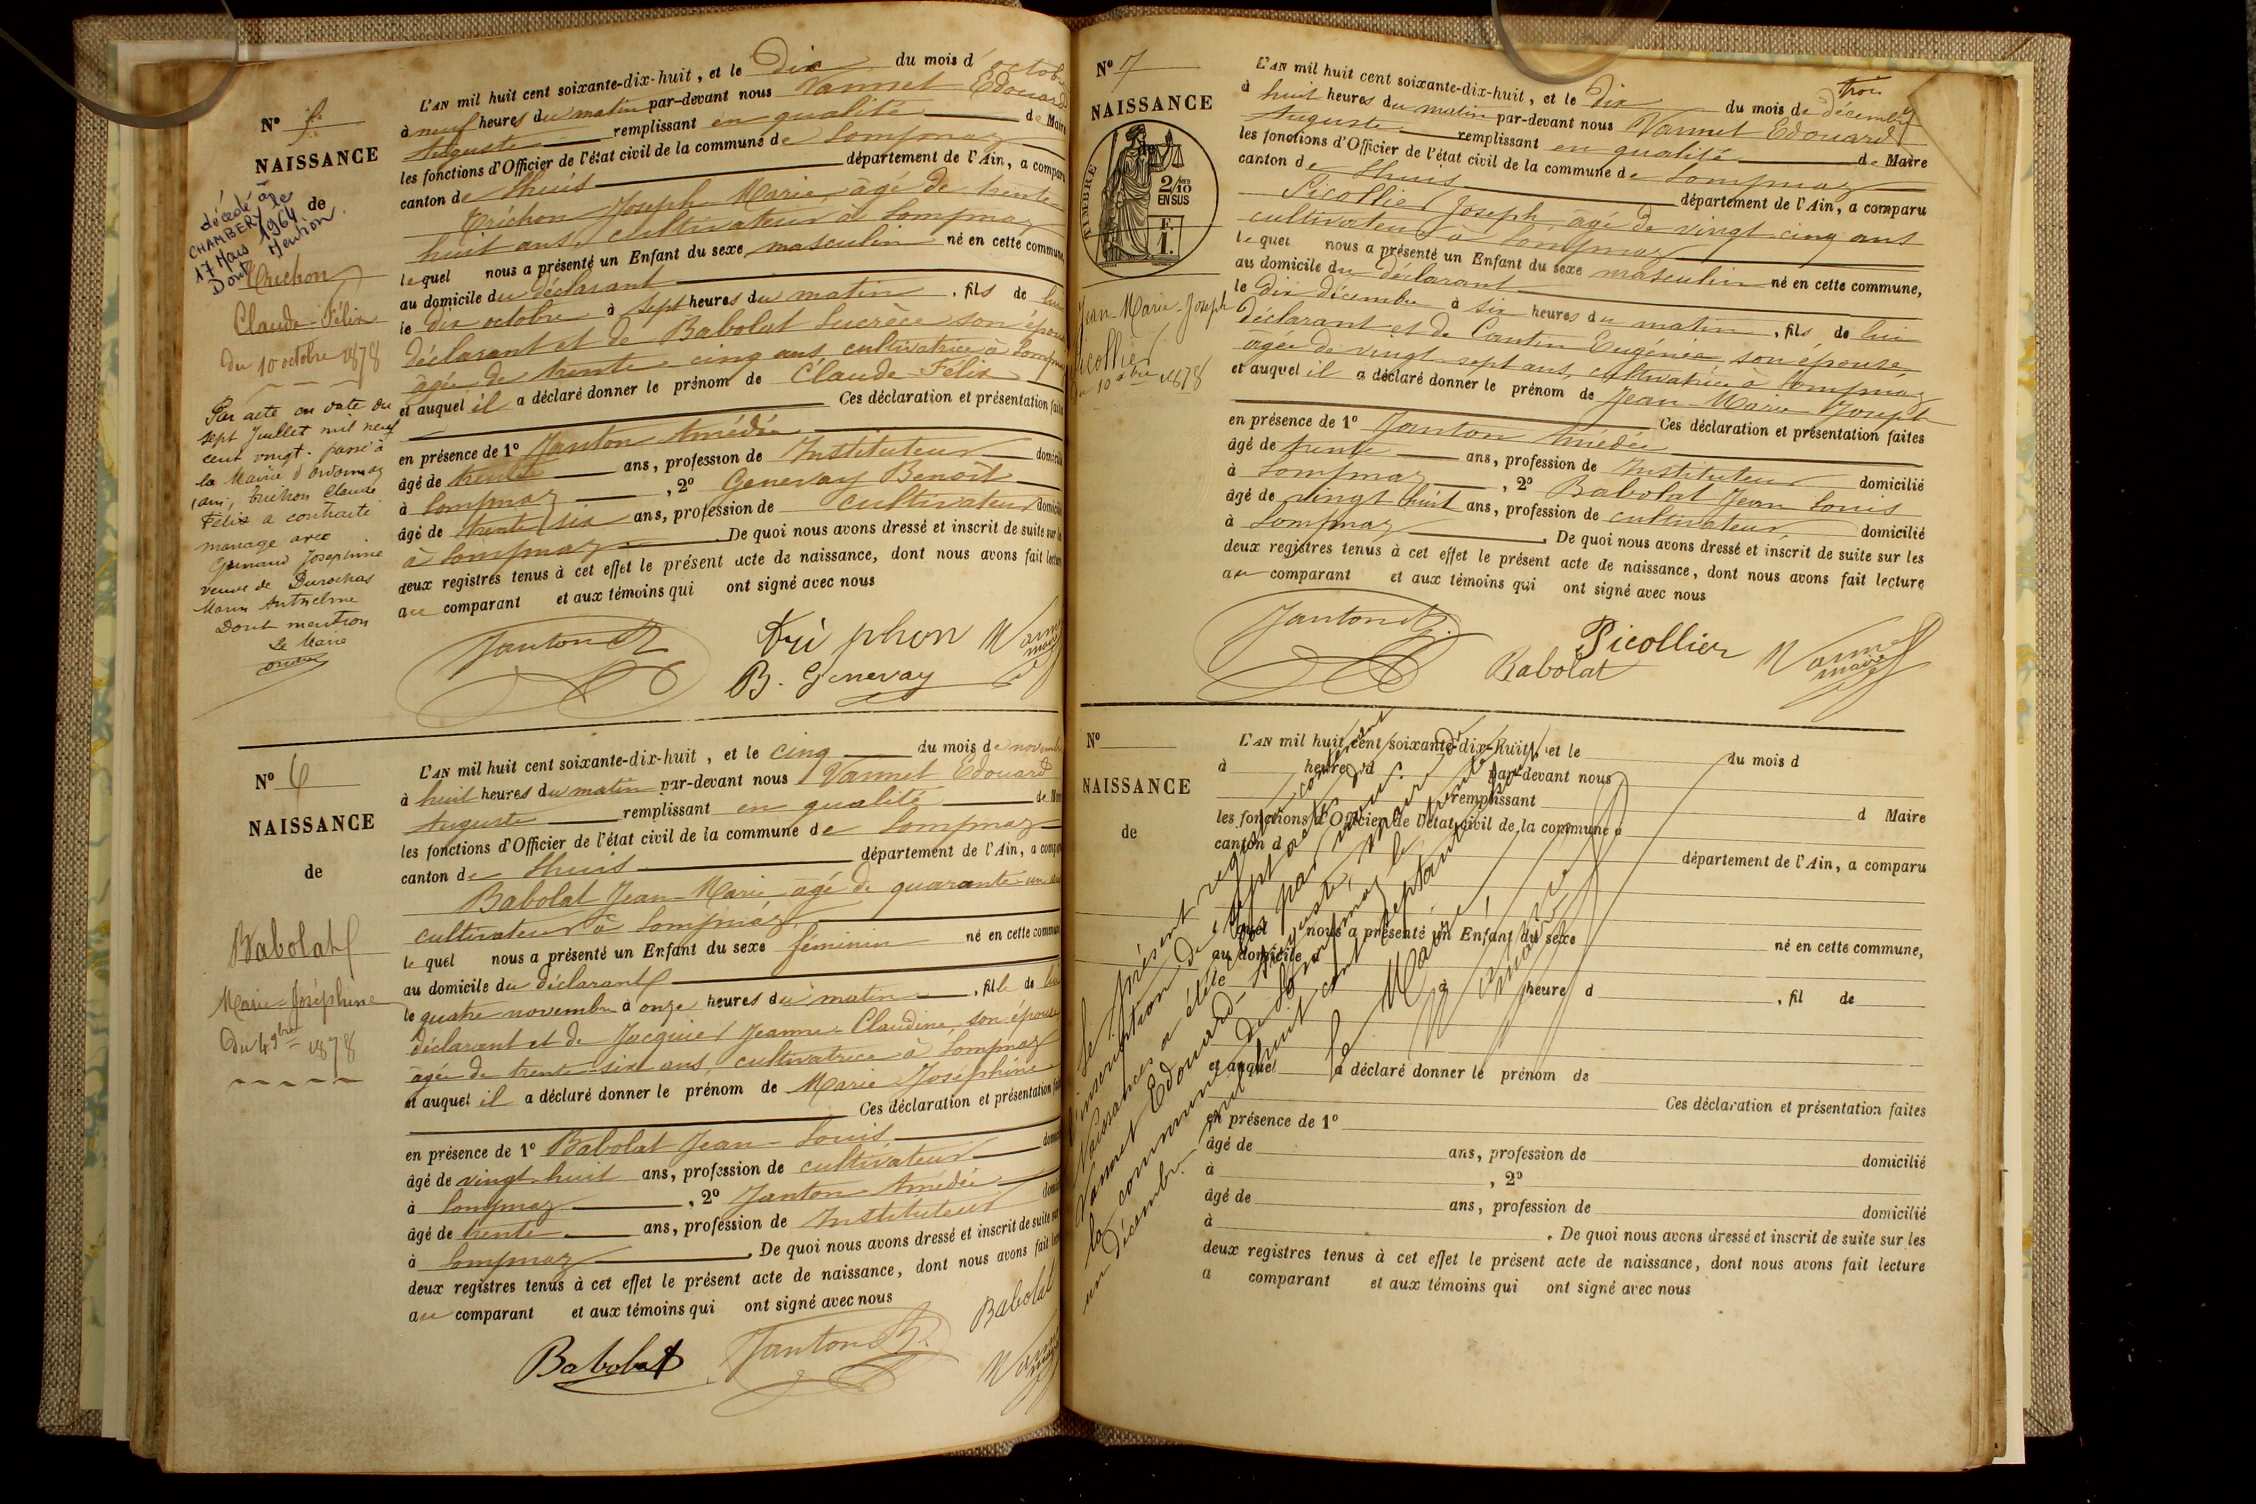 N° 5
NAISSANCE
de
décédé à
CHAMBERY le
17 Mars 1964
Dont Mention
Trichon
Claude-Félix
du 10 octobre 1878
Par acte en date du
sept Juillet mil neuf
cent vingt. passé à
la Mairie d'
(ain), Trichon Claude
Félix a contracté
mariage avec
Joséphine
veuve de
Marin Anthelme
Dont mention
Le Maire
L'AN mil huit cent soixante-dix-huit, et le dix du mois d'octobre
à neuf heures du matin par-devant nous Vannet Edouard
Auguste remplissant en qualité de Maire
les fonctions d'Officier de l'état civil de la commune de Lompnaz
canton de Lhuis département de l'Ain, a comparu
Trichon Joseph Marie, agé de trente
huit ans, cultivateur à Lompnaz
lequel nous a présenté un Enfant du sexe masculin né en cette commune
au domicile du déclarant
le dix octobre à sept heures du matin, fils de lui
déclarant et de Babolat Lucrèce son épouse
âgée de trente-cinq ans, cultivatrice à Lompnaz
et auquel il a déclaré donner le prénom de Claude Félix
Ces déclaration et présentation faites
en présence de 1° Janton Amédée
âgé de trente ans, profession de Instituteur domicilié
à Lompnaz, 2° Genevay Benoît
âgé de trente six ans, profession de cultivateur domicilié
à Lompnaz. De quoi nous avons dressé et inscrit de suite sur les
deux registres tenus à cet effet le présent acte de naissance, dont nous avons fait lecture
au comparant et aux témoins qui ont signé avec nous
Janton A Triphon Vannet
maire
B. Genevay
N° 6
NAISSANCE
de
Babolat
Marie-Joséphine
Du 4 9bre 1878
L'AN mil huit cent soixante-dix-huit, et le cinq du mois de novembre
à huit heures du matin par-devant nous Vannet Edouard
Auguste remplissant en qualité de Maire
les fonctions d'Officier de l'état civil de la commune de Lompnaz
canton de Lhuis département de l'Ain, a comparu
Babolat Jean-Marie agé de quarante-un ans
cultivateur à Lompnaz
lequel nous a présenté un Enfant du sexe féminin né en cette commune
au domicile du déclarant
le quatre novembre à onze heures du matin, fille de lui
déclarant et de Jacquier Jeanne-Claudine son épouse
âgée de trente-six ans, cultivatrice à Lompnaz
et auquel il a déclaré donner le prénom de Marie Joséphine
Ces déclaration et présentation faites
en présence de 1° Babolat Jean-Louis
âgé de vingt-huit ans, profession de cultivateur domicilié
à Lompnaz, 2° Janton Amédée
âgé de trente ans, profession de Instituteur domicilié
à Lompnaz. De quoi nous avons dressé et inscrit de suite sur
deux registres tenus à cet effet le présent acte de naissance, dont nous avons fait lecture
au comparant et aux témoins qui ont signé avec nous
Babolat
Babolat Janton A. Vannet
maire
N° 7
NAISSANCE
de
TIMBRE
2/10
EN SUS
F.
1.
Jean-Marie-Joseph
Picollier
du 10 Xbre 1878
trois
L'AN mil huit cent soixante-dix-huit, et le dix du mois de décembre
à huit heures du matin par-devant nous Vannet Edouard
Auguste remplissant en qualité de Maire
les fonctions d'Officier de l'état civil de la commune de Lompnaz
canton de Lhuis département de l'Ain, a comparu
Picollier Joseph agé de vingt cinq ans
cultivateur à Lompnaz
lequel nous a présenté un Enfant du sexe masculin né en cette commune,
au domicile du déclarant
le dix décembre à six heures du matin, fils de lui
déclarant et de Cantin Eugénie son épouse
agée de vingt-sept ans, cultivatrice à Lompnaz
et auquel il a déclaré donner le prénom de Jean-Marie Joseph
Ces déclaration et présentation faites
en présence de 1° Janton Amédée
âgé de trente ans, profession de Instituteur domicilié
à Lompnaz, 2° Babolat Jean Louis
âgé de vingt huit ans, profession de cultivateur domicilié
à Lompnaz. De quoi nous avons dressé et inscrit de suite sur les
deux registres tenus à cet effet le présent acte de naissance, dont nous avons fait lecture
au comparant et aux témoins qui ont signé avec nous
Janton A. Picollier Vannet
maire
Babolat
N°
NAISSANCE
de
L'AN mil huit cent soixante-dix-huit, et le du mois d
à heure d par-devant nous
remplissant d Maire
les fonctions d'Officier de l'état civil de la commune d
canton d département de l'Ain, a comparu
lequel nous a présenté un Enfant du sexe né en cette commune,
au domicile
le à heure d, fil de
et auquel a déclaré donner le prénom de
Ces déclaration et présentation faites
en présence de 1°
âgé de ans, profession de domicilié
à, 2°
âgé de ans, profession de domicilié
à. De quoi nous avons dressé et inscrit de suite sur les
deux registres tenus à cet effet le présent acte de naissance, dont nous avons fait lecture
a comparant et aux témoins qui ont signé avec nous
Le présent registre contenant
l'inscription de sept actes de
Naissances a été clos par nous
Vannet Edouard-Auguste, maire de
la commune de Lompnaz le trente
un décembre mil huit cent soixante-dix-huit
Le Maire,
Vannet
maire